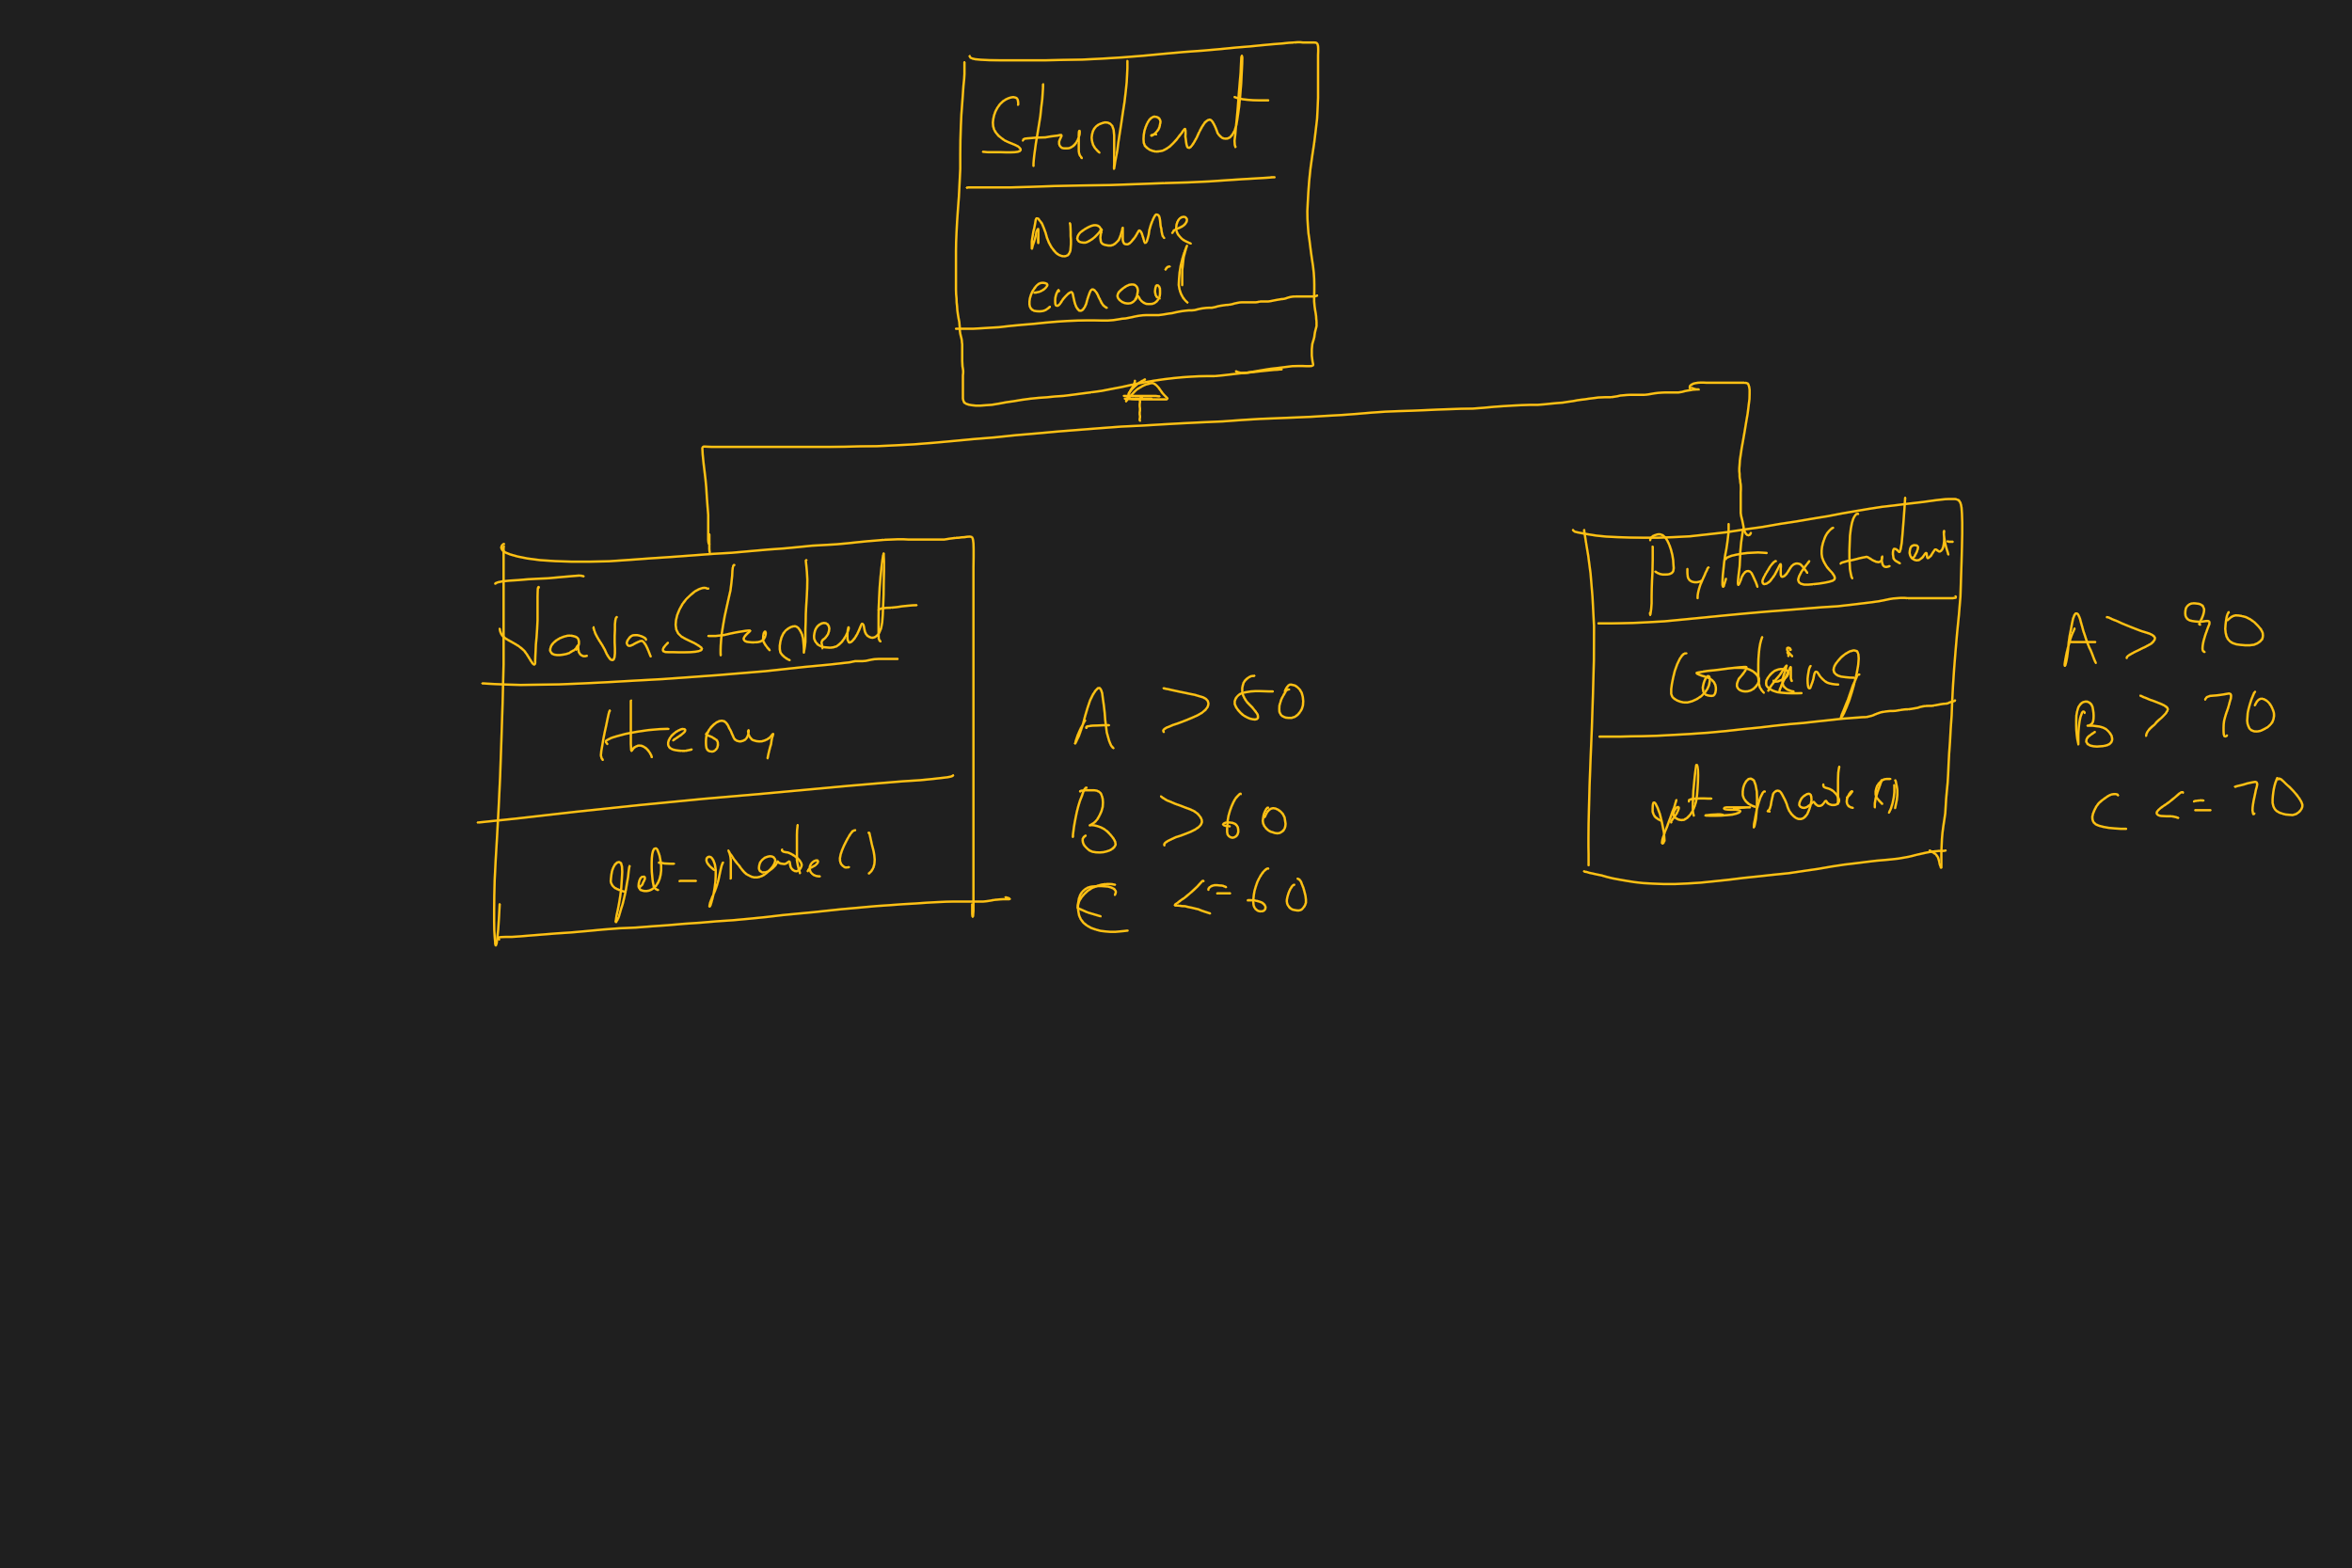 Student
Name
email
JavaStudent
Theory
get_grade()
A > 80
B > 60
C <= 60
PythonStudent
Coding
get_grade()
A > 90
B > 70
C <= 70